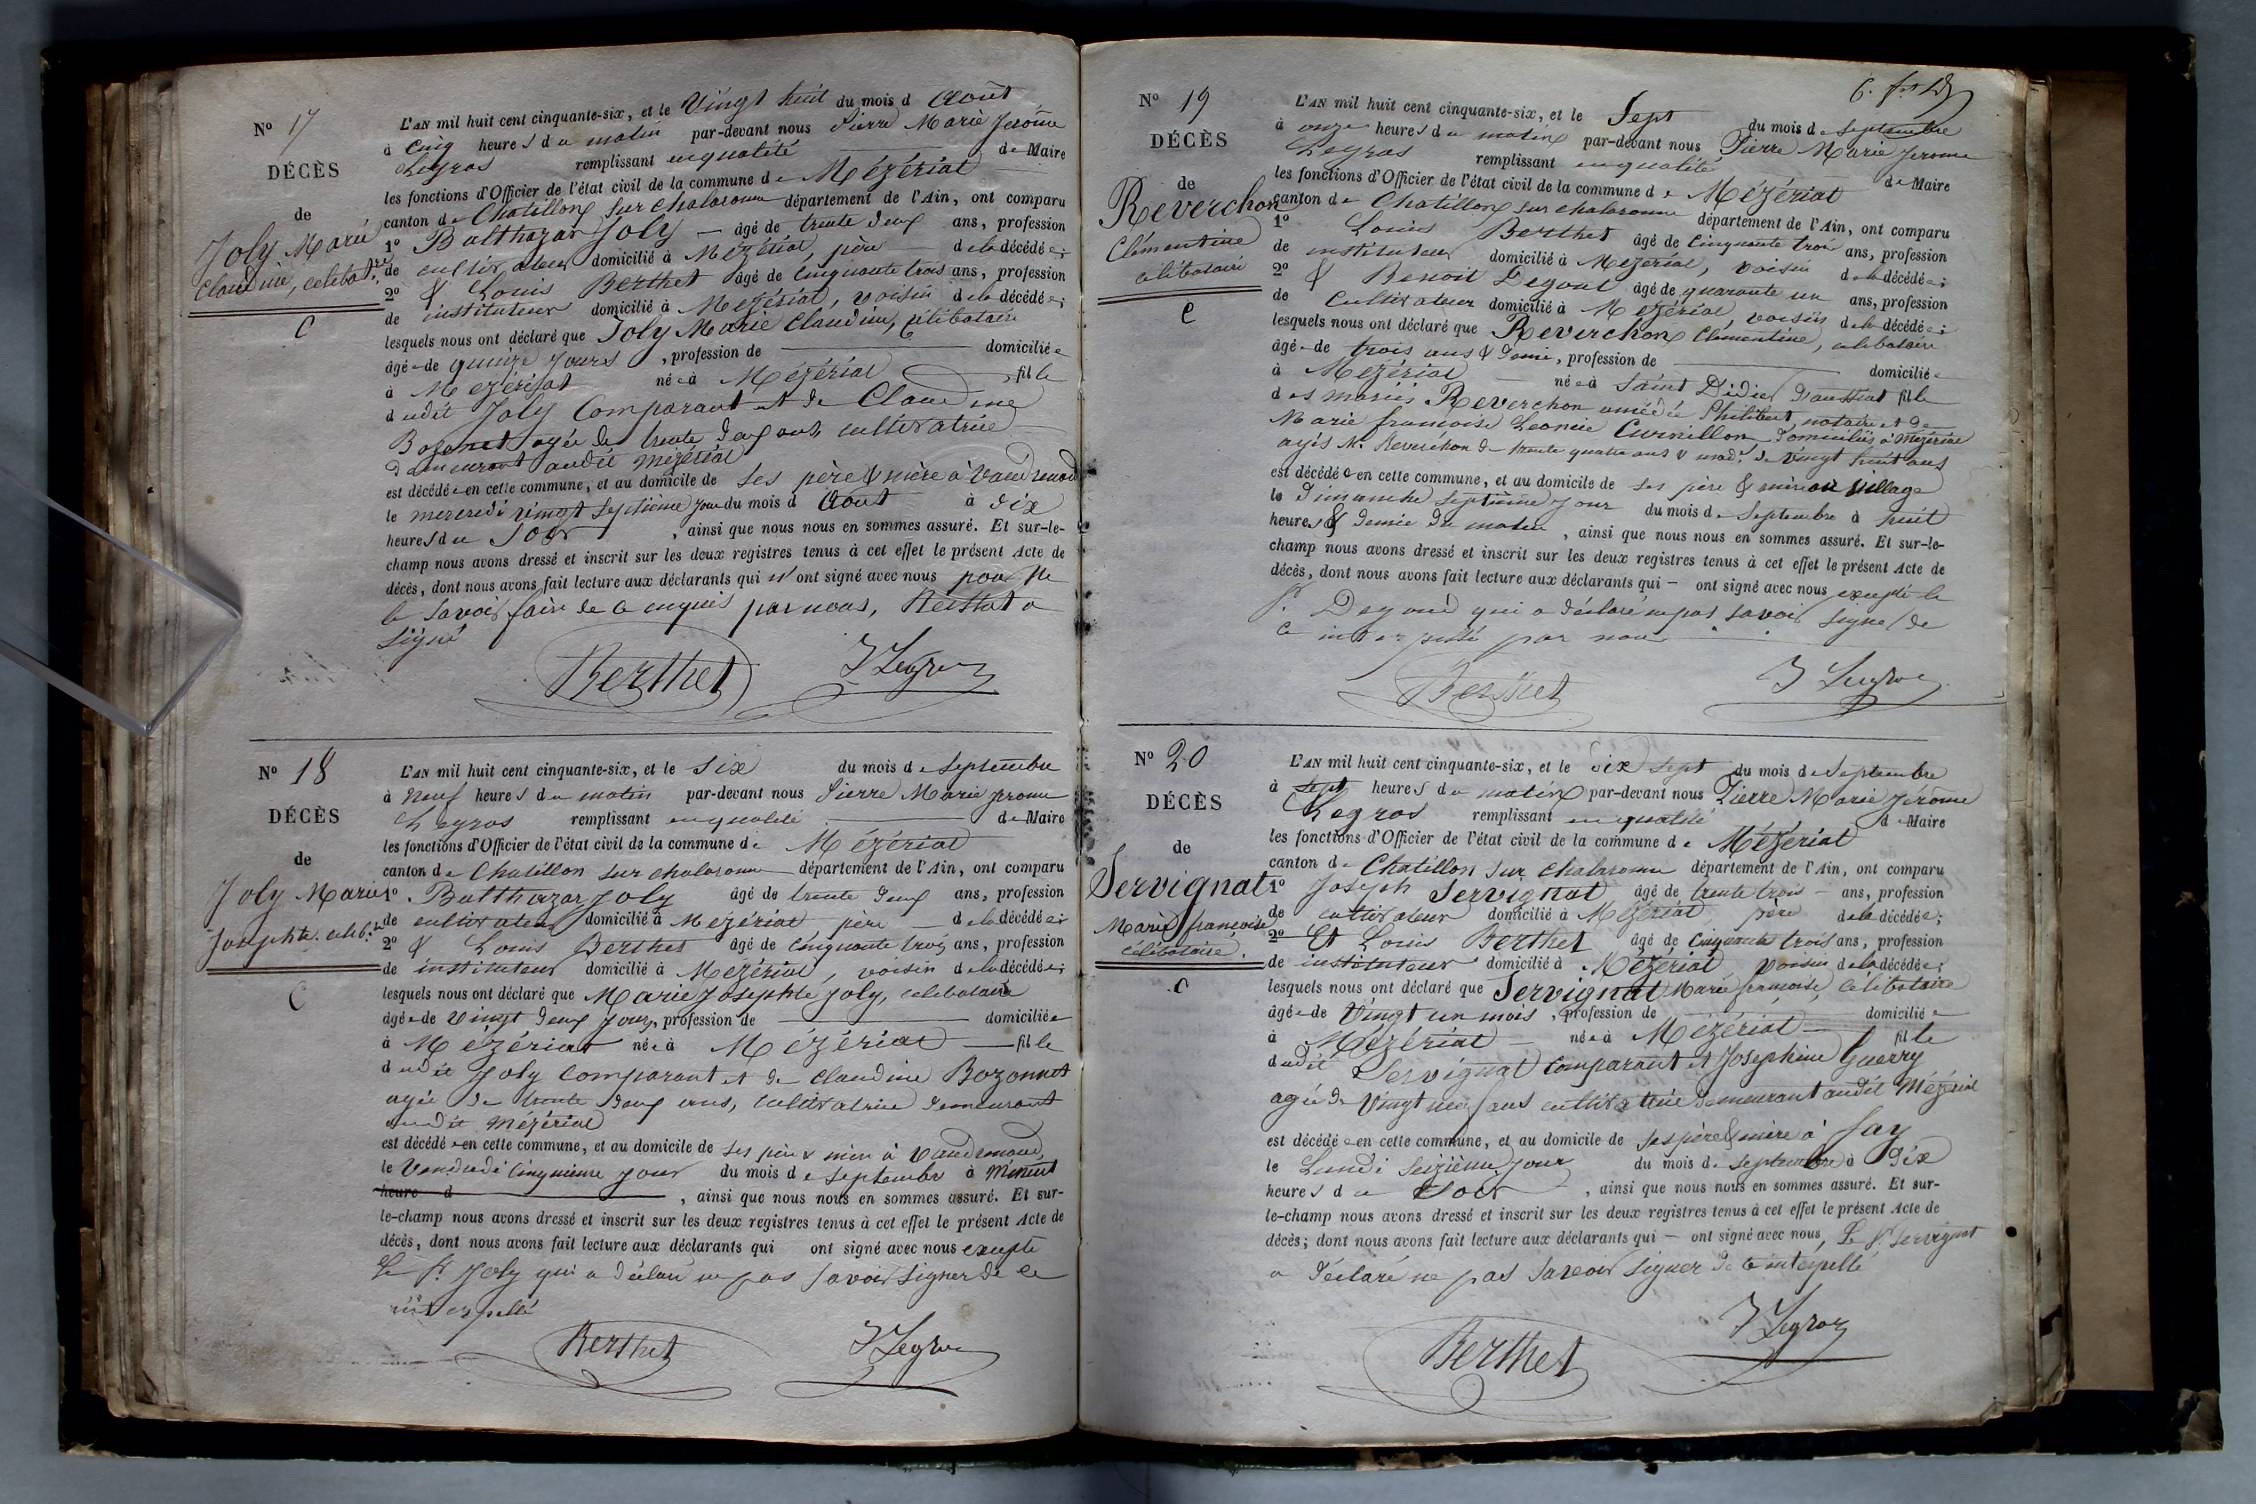 No 17
DÉCÈS
de
Joly Marie
Claudine, celibatre
C
L'AN mil huit cent cinquante-six, et le Vingt huit du mois d Août
à Cinq heures du matin par-devant nous Pierre Marie Jerôme
Legros remplissant en qualité de Maire
les fonctions d'Officier de l'état civil de la commune de Mézériat
canton de Chatillon sur chalaronne département de l'Ain, ont comparu
1o Balthazar Joly – âgé de trente deux ans, profession
de cultivateur domicilié à Mézériat, père – de la décédée;
2o & Louis Berthet âgé de Cinquante trois ans, profession
de instituteur domicilié à Mézériat, voisin de la décédée;
lesquels nous ont déclaré que Joly Marie Claudine, célibataire
âgée de quinze jours, profession de domiciliée
à Mézériat née à Mézériat, fille
dudit Joly Comparant et de Claudine
Bozonet agée de trente deux ans, cultivatrice
demeurant audit Mézériat
est décédée en cette commune, et au domicile de ses père & mère à Vaudrenod
le mercredi vingt septième jour du mois d Aout à dix
heures du Soir, ainsi que nous nous en sommes assuré. Et sur-le-
champ nous avons dressé et inscrit sur les deux registres tenus à cet effet le présent Acte de
décès, dont nous avons fait lecture aux déclarants qui n'ont signé avec nous pour ne
le savoir faire de ce enquis par nous, Berthet a
signé
Berthet J Legros
No 18
DÉCÈS
de
Joly Marie
Josephte. celib.re
C
L'AN mil huit cent cinquante-six, et le Six du mois de Septembre
à Neuf heures du matin par-devant nous Pierre Marie Jerome
Legros remplissant en qualité de Maire
les fonctions d'Officier de l'état civil de la commune de Mézériat
canton de Chatillon sur chalaronne département de l'Ain, ont comparu
1o Balthazar Joly âgé de trente deux ans, profession
de cultivateur domicilié à Mézériat père – de la décédée;
2o & Louis Berthet âgé de Cinquante trois ans, profession
de instituteur domicilié à Mézériat, voisin de la décédée;
lesquels nous ont déclaré que Marie Josephte Joly, celibataire
âgée de Vingt deux jours, profession de domiciliée
à Mézériat née à Mézériat – fille
dudit Joly Comparant et de Claudine Bozonnet
agée de trente deux ans, cultivatrice demeurant
audit Mézériat
est décédée en cette commune, et au domicile de ses père & mère à Vaudrenoud,
le Vendredi Cinquieme jour du mois de Septembre à Minuit
heure d , ainsi que nous nous en sommes assuré. Et sur-
le-champ nous avons dressé et inscrit sur les deux registres tenus à cet effet le présent Acte de
décès, dont nous avons fait lecture aux déclarants qui ont signé avec nous excepté
le Sr. Joly qui a déclaré ne pas savoir signer de ce
interpellé
Berthet J Legros
6. fet
No 19
DÉCÈS
de
Reverchon
Clémentine
celibataire
C
L'AN mil huit cent cinquante-six, et le Sept du mois de Septembre
à onze heures du matin par-devant nous Pierre Marie Jerome
Legros remplissant en qualité de Maire
les fonctions d'Officier de l'état civil de la commune de Mézériat
canton de Chatillon sur chalaronne département de l'Ain, ont comparu
1o Louis Berthet âgé de Cinquante trois ans, profession
de instituteur domicilié à Mezeriat, voisin de la décédée;
2o & Benoit Degout âgé de quarante un ans, profession
de Cultivateur domicilié à Mezériat, voisin de la décédée;
lesquels nous ont déclaré que Reverchon Clémentine, celibataire
âgée de trois ans & demi, profession de domiciliée
à Mézériat née à Saint Didier d'aussiat fille
des mariés Reverchon amédée Philibert, notaire et de
Marie francoise Leonie Curnillon domiciliés à Mézériat
agés Mr. Reverchon de trente quatre ans & mad.e de Vingt huit ans
est décédée en cette commune, et au domicile de ses père & mère au Village
le Dimanche Septième jour du mois de Septembre à huit
heures & demie du matin, ainsi que nous nous en sommes assuré. Et sur-le-
champ nous avons dressé et inscrit sur les deux registres tenus à cet effet le présent Acte de
décès, dont nous avons fait lecture aux déclarants qui – ont signé avec nous excepté le
Sr. Degout qui a déclaré ne pas savoir signer de
ce interpellé par nous
Berthet J Legros
No 20
DÉCÈS
de
Servignat
Marie françoise
célibataire.
C
L'AN mil huit cent cinquante-six, et le Dix Sept du mois de Septembre
à sept heures du matin par-devant nous Pierre Marie Jérôme
Legros remplissant en qualité de Maire
les fonctions d'Officier de l'état civil de la commune de Mézériat
canton de Chatillon sur chalaronne département de l'Ain, ont comparu
1o Joseph Servignat âgé de trente trois – ans, profession
de cultivateur domicilié à Mézériat père de la décédée;
2o Et Louis Berthet âgé de Cinquante trois ans, profession
de instituteur domicilié à Mézériat voisin de la décédée;
lesquels nous ont déclaré que Servignat Marie françoise, célibataire
âgée de Vingt un mois, profession de domiciliée
à Mézériat – née à Mézériat – fille
dudit Servignat comparant et Josephine Guerry
agée de Vingt neuf ans cultivatrice demeurant audit Mézériat
est décédée en cette commune, et au domicile de ses père & mère à Fay
le Lundi Seizième jour du mois de Septembre à Dix
heures du Soir, ainsi que nous nous en sommes assuré. Et sur-
le-champ nous avons dressé et inscrit sur les deux registres tenus à cet effet le présent Acte de
décès; dont nous avons fait lecture aux déclarants qui – ont signé avec nous, Le Sr. Servignat
a déclaré ne pas savoir signer de ce interpellé
Berthet J Legros